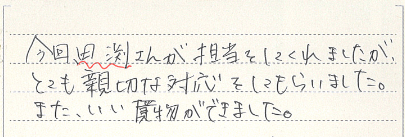 今回田渕さんが担当をしてくれましたが、
とても親切な対応をしてもらいました。
また、いい買物ができました。